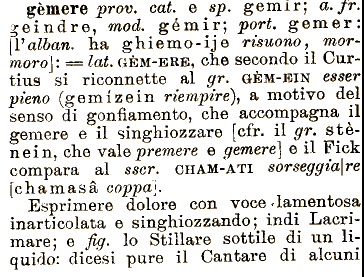 gèmere prov. cat. e sp. gemir; a. fr.
geindre, mod. gémir; port. gemer:
[l'alban. ha ghiemo-ije risuono, mor-
moro]: = lat. GÈM-ERE, che secondo il Cur-
tius si riconnette al gr. GÈM-EIN esser
pieno (gemízein riempire), a motivo del
senso di gonfiamento, che accompagna il
gemere e il singhiozzare [cfr. il gr. stè-
nein, che vale premere e gemere] e il Fick
compara al sscr. CHAM-ATI sorseggia|re
[chamasâ coppa].
Esprimere dolore con voce lamentosa
inarticolata e singhiozzando; indi Lacri-
mare; e fig. lo Stillare sottile di un li-
quido: dicesi pure il Cantare di alcuni